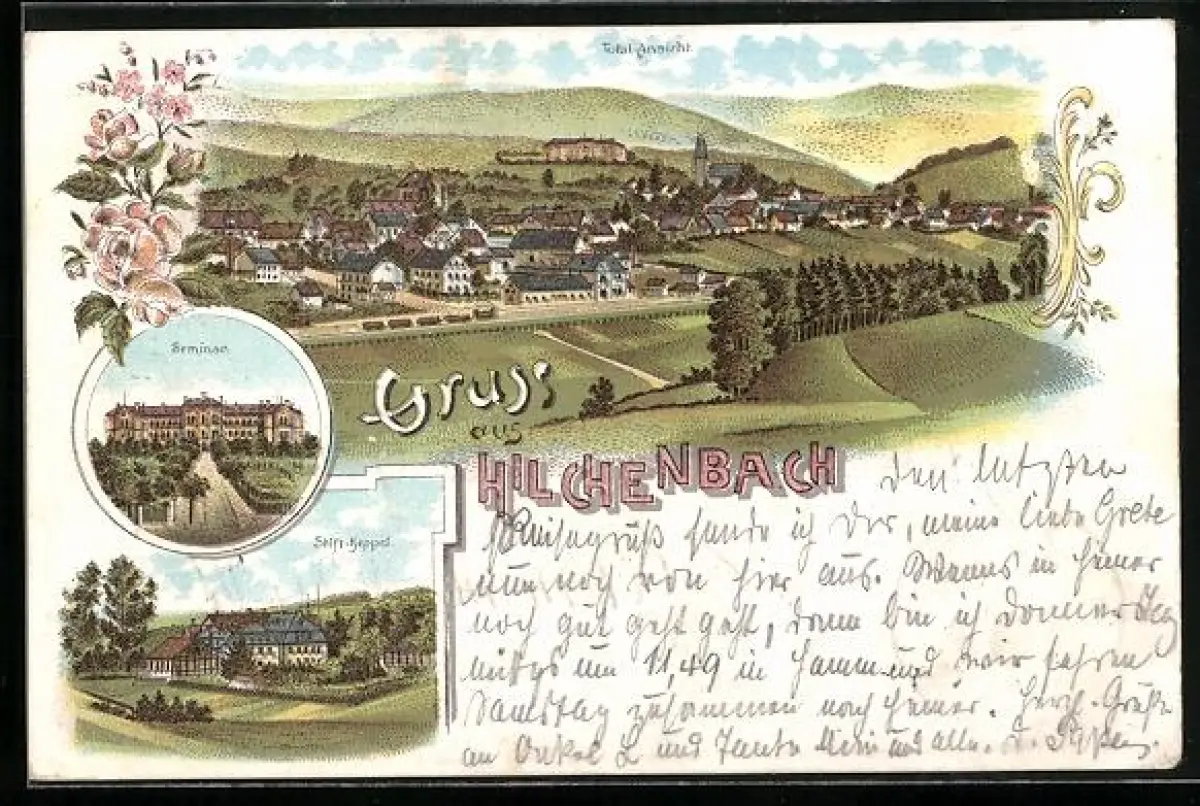 Total-Ansicht.
Seminar.
Gruss
aus
HILCHENBACH
Stift-Keppel.
Den letzten
Reisegruß sende ich Dir, meine liebe Grete
nun noch von hier aus. Wenns in Hemer
noch gut geht, dann bin ich Donners
mittgs um 11,49 in Hamm und wir fahren
Samstag zusammen nach Hemer. Herzl. Grüße
an Onkel L und Tante Mein und alle.